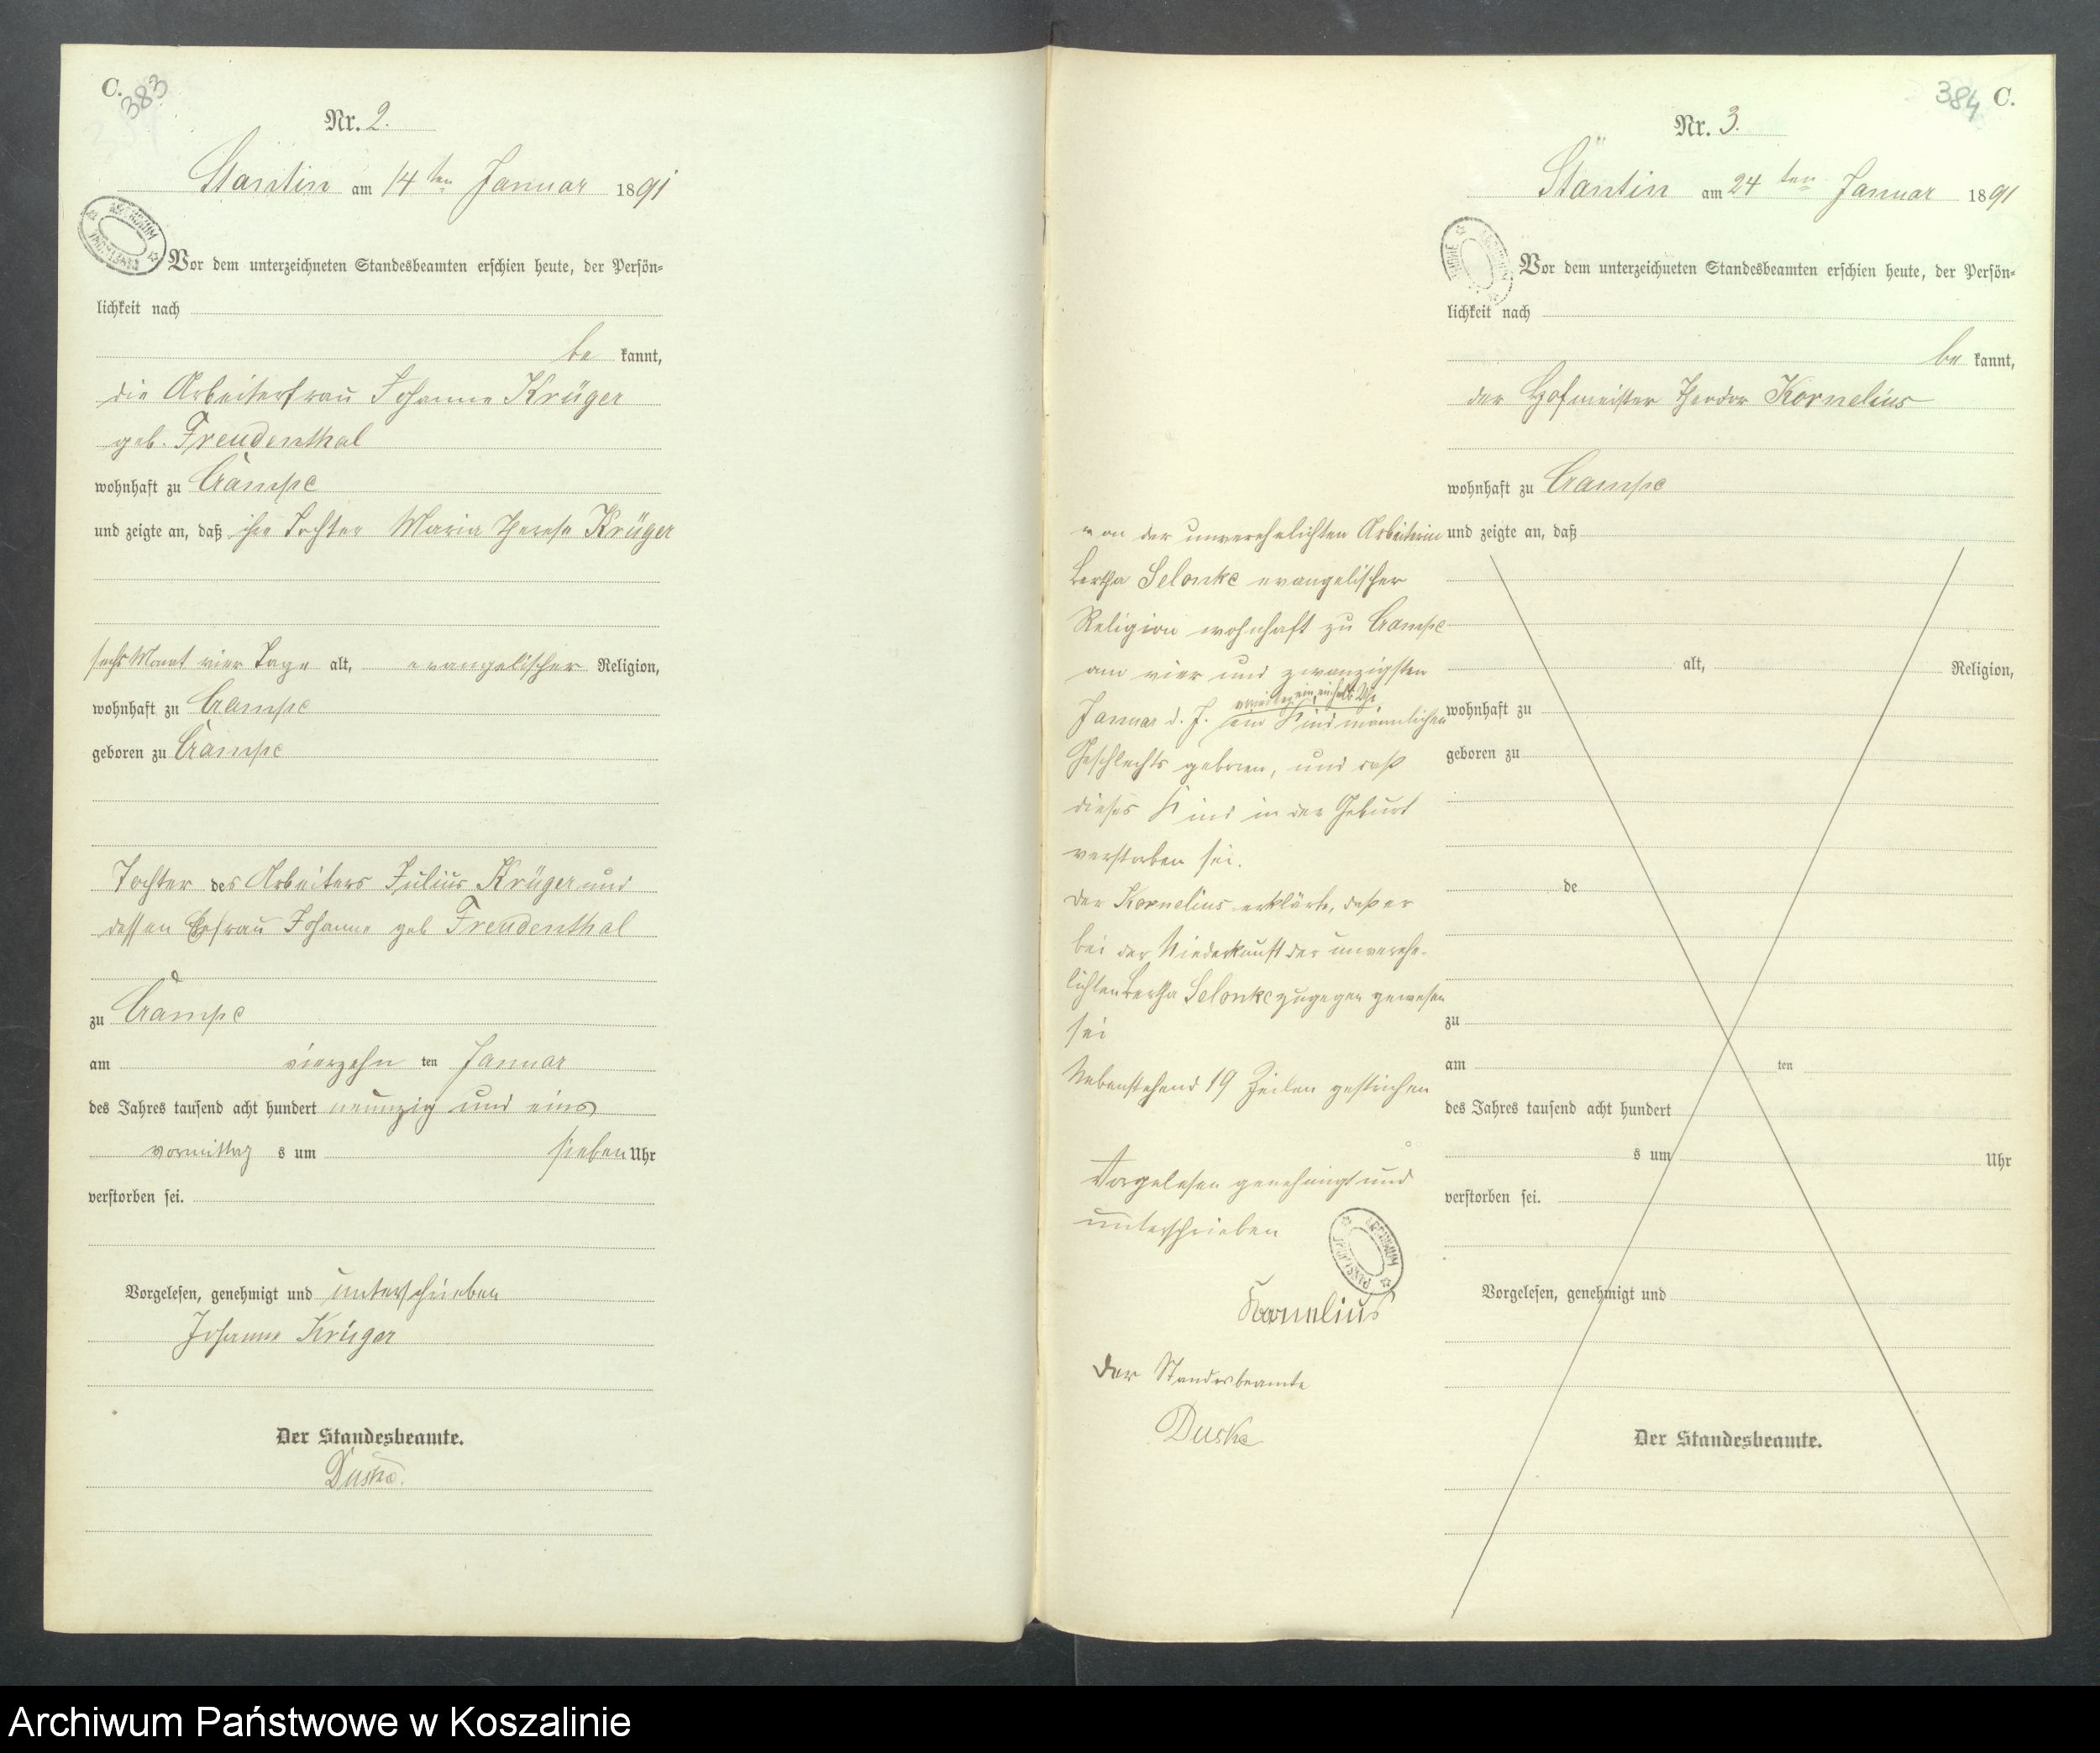 C.
383
Nr. 2.
Stantin am 14ten Januar 1891
Vor dem unterzeichneten Standesbeamten erschien heute, der Persön-
lichkeit nach
be kannt,
die Arbeiterfrau Johanne Krüger
geb. Freudenthal
wohnhaft zu Campe
und zeigte an, daß ihre Tochter Maria Therese Krüger
sechs Monat vier Tage alt, evangelischer Religion,
wohnhaft zu Campe
geboren zu Campe
Tochter des Arbeiters Julius Krüger und
dessen Ehefrau Johanne geb Freudenthal
zu Campe
am vierzehn ten Januar
des Jahres tausend acht hundert neunzig und eins
vormittag s um sieben Uhr
verstorben sei.
Vorgelesen, genehmigt und unterschrieben
Johanne Krüger
Der Standesbeamte.
Duske.
384 C.
Nr. 3.
Stäntin am 24ten Januar 1891
Vor dem unterzeichneten Standesbeamten erschien heute, der Persön-
lichkeit nach
be kannt,
der Hofmeister Theodor Kornelius
wohnhaft zu Campe
und zeigte an, daß
alt, Religion,
wohnhaft zu
geboren zu
de
zu
am ten
des Jahres tausend acht hundert
s um Uhr
verstorben sei.
Vorgelesen, genehmigt und
Der Standesbeamte.
von der unverehelichten Arbeiterin
Bertha Selonke evangelischer
Religion wohnhaft zu Campe
am vier und zwanzigsten
Januar d. J. ein Kind männlichen
Geschlechts geboren, und daß
dieses Kind in der Geburt
verstorben sei.
Der Kornelius erklärte, daß er
bei der Niederkunft der unverehe-
lichten Bertha Selonke zugegen gewesen
sei
Nebenstehend 19 Zeilen gestrichen
Vorgelesen genehmigt und
unterschrieben
Kornelius
Der Standesbeamte
Duske
Archiwum Państwowe w Koszalinie